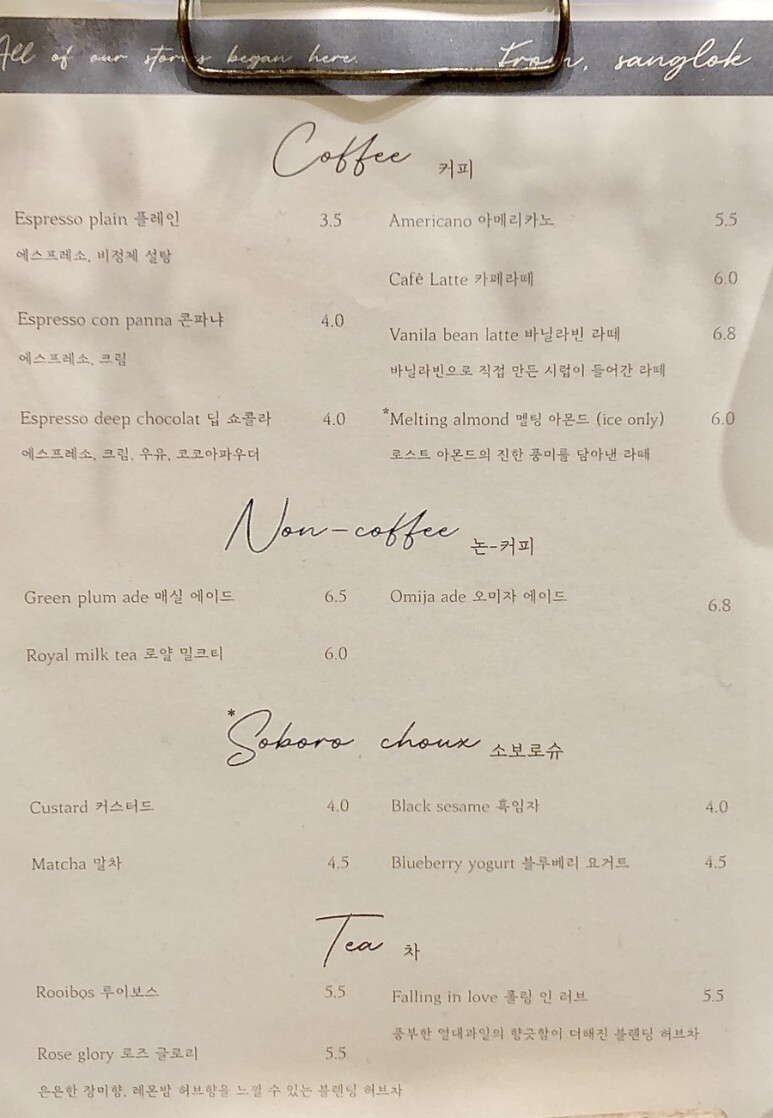 All of our stories began here.
From, sanglok
Coffee 커피
Espresso plain 플레인 3.5
에스프레소, 비정제 설탕
Espresso con panna 콘파냐 4.0
에스프레소, 크림
Espresso deep chocolat 딥 쇼콜라 4.0
에스프레소, 크림, 우유, 코코아파우더
Americano 아메리카노 5.5
Cafè Latte 카페라떼 6.0
Vanila bean latte 바닐라빈 라떼 6.8
바닐라빈으로 직접 만든 시럽이 들어간 라떼
*Melting almond 멜팅 아몬드 (ice only) 6.0
로스트 아몬드의 진한 풍미를 담아낸 라떼
Non-coffee 논-커피
Green plum ade 매실 에이드 6.5
Royal milk tea 로얄 밀크티 6.0
Omija ade 오미자 에이드 6.8
*Soboro choux 소보로슈
Custard 커스터드 4.0
Matcha 말차 4.5
Black sesame 흑임자 4.0
Blueberry yogurt 블루베리 요거트 4.5
Tea 차
Rooibos 루이보스 5.5
Rose glory 로즈 글로리 5.5
은은한 장미향, 레몬밤 허브향을 느낄 수 있는 블렌딩 허브차
Falling in love 폴링 인 러브 5.5
풍부한 열대과일의 향긋함이 더해진 블렌딩 허브차